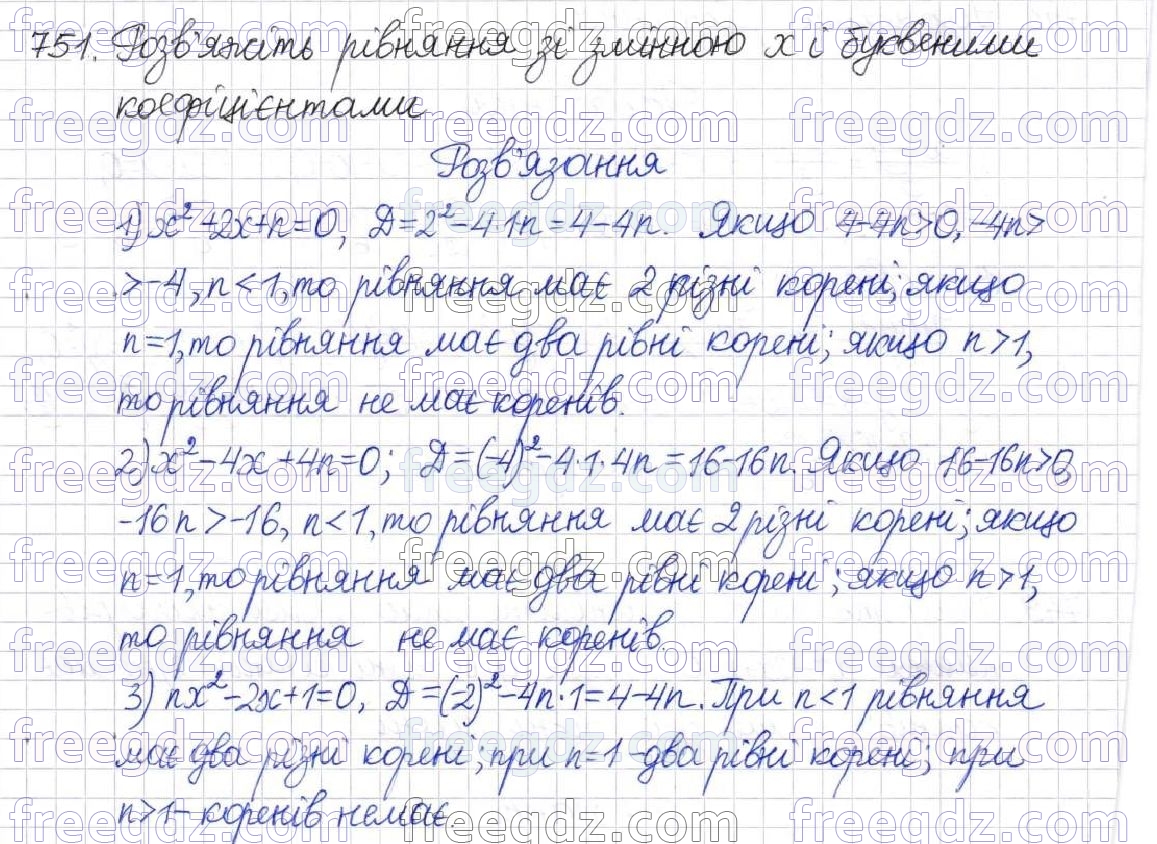 751. Розв'яжіть рівняння зі змінною x і буквеними
коефіцієнтами
Розв'язання
1) x² + 2x + n = 0, Д = 2² - 4·1·n = 4 - 4n. Якщо 4-4n>0, -4n>
>-4, n<1, то рівняння має 2 різні корені; якщо
n=1, то рівняння має два рівні корені; якщо n>1,
то рівняння не має коренів.
2) x² - 4x + 4n = 0; Д = (-4)² - 4·1·4n = 16-16n. Якщо 16-16n>0,
-16n>-16, n<1, то рівняння має 2 різні корені; якщо
n=1, то рівняння має два рівні корені; якщо n>1,
то рівняння не має коренів.
3) nx² - 2x + 1 = 0, Д = (-2)² - 4n·1 = 4-4n. При n<1 рівняння
має два різні корені; при n=1 - два рівні корені; при
n>1 - коренів немає.